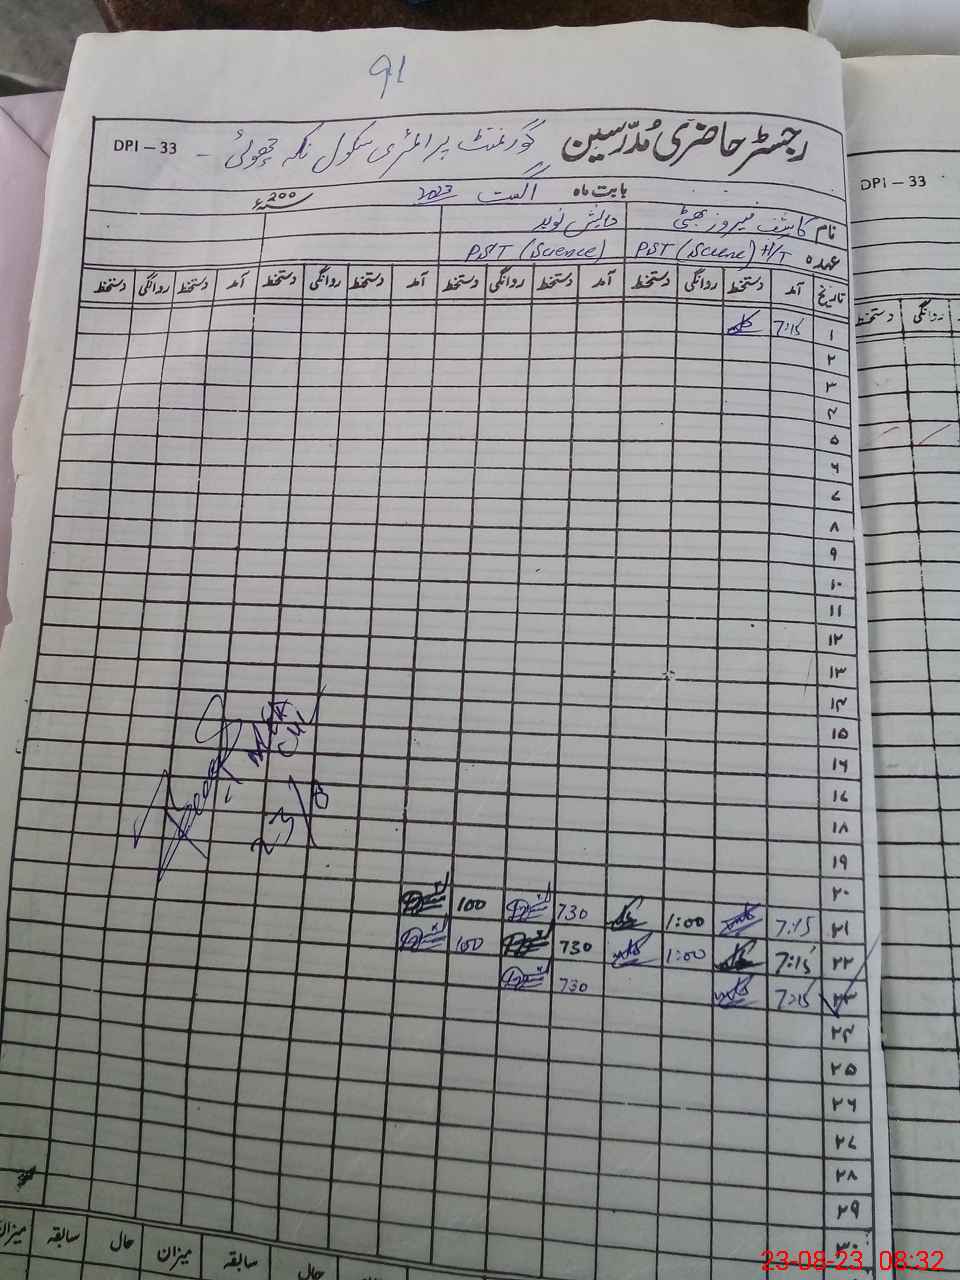 91
DPI – 33 رجسٹر حاضری مُدرّسین گورنمنٹ پرائمری سکول نکہ چھوئی -
بابت ماہ اگست 2023 سنہ 200ء
نام کاشف فیروز بھٹی دانش نوید
عہدہ PST (Science) H/T PST (Science)
تاریخ آمد دستخط روانگی دستخط آمد دستخط روانگی دستخط آمد دستخط روانگی دستخط آمد دستخط روانگی دستخط
۱ 7:15
۲
۳
۴
۵
۶
۷
۸
۹
۱۰
۱۱
۱۲
۱۳
۱۴
۱۵
۱۶
۱۷
۱۸
۱۹
۲۰
۲۱ 7:15 1:00 730 100
۲۲ 7:15 1:00 730 100
۲۳ 7:15 730
۲۴
۲۵
۲۶
۲۷
۲۸
۲۹
۳۰
23/8
حال سابقہ میزان حال سابقہ میزان
DPI – 33
دستخط روانگی
23-08-23 08:32